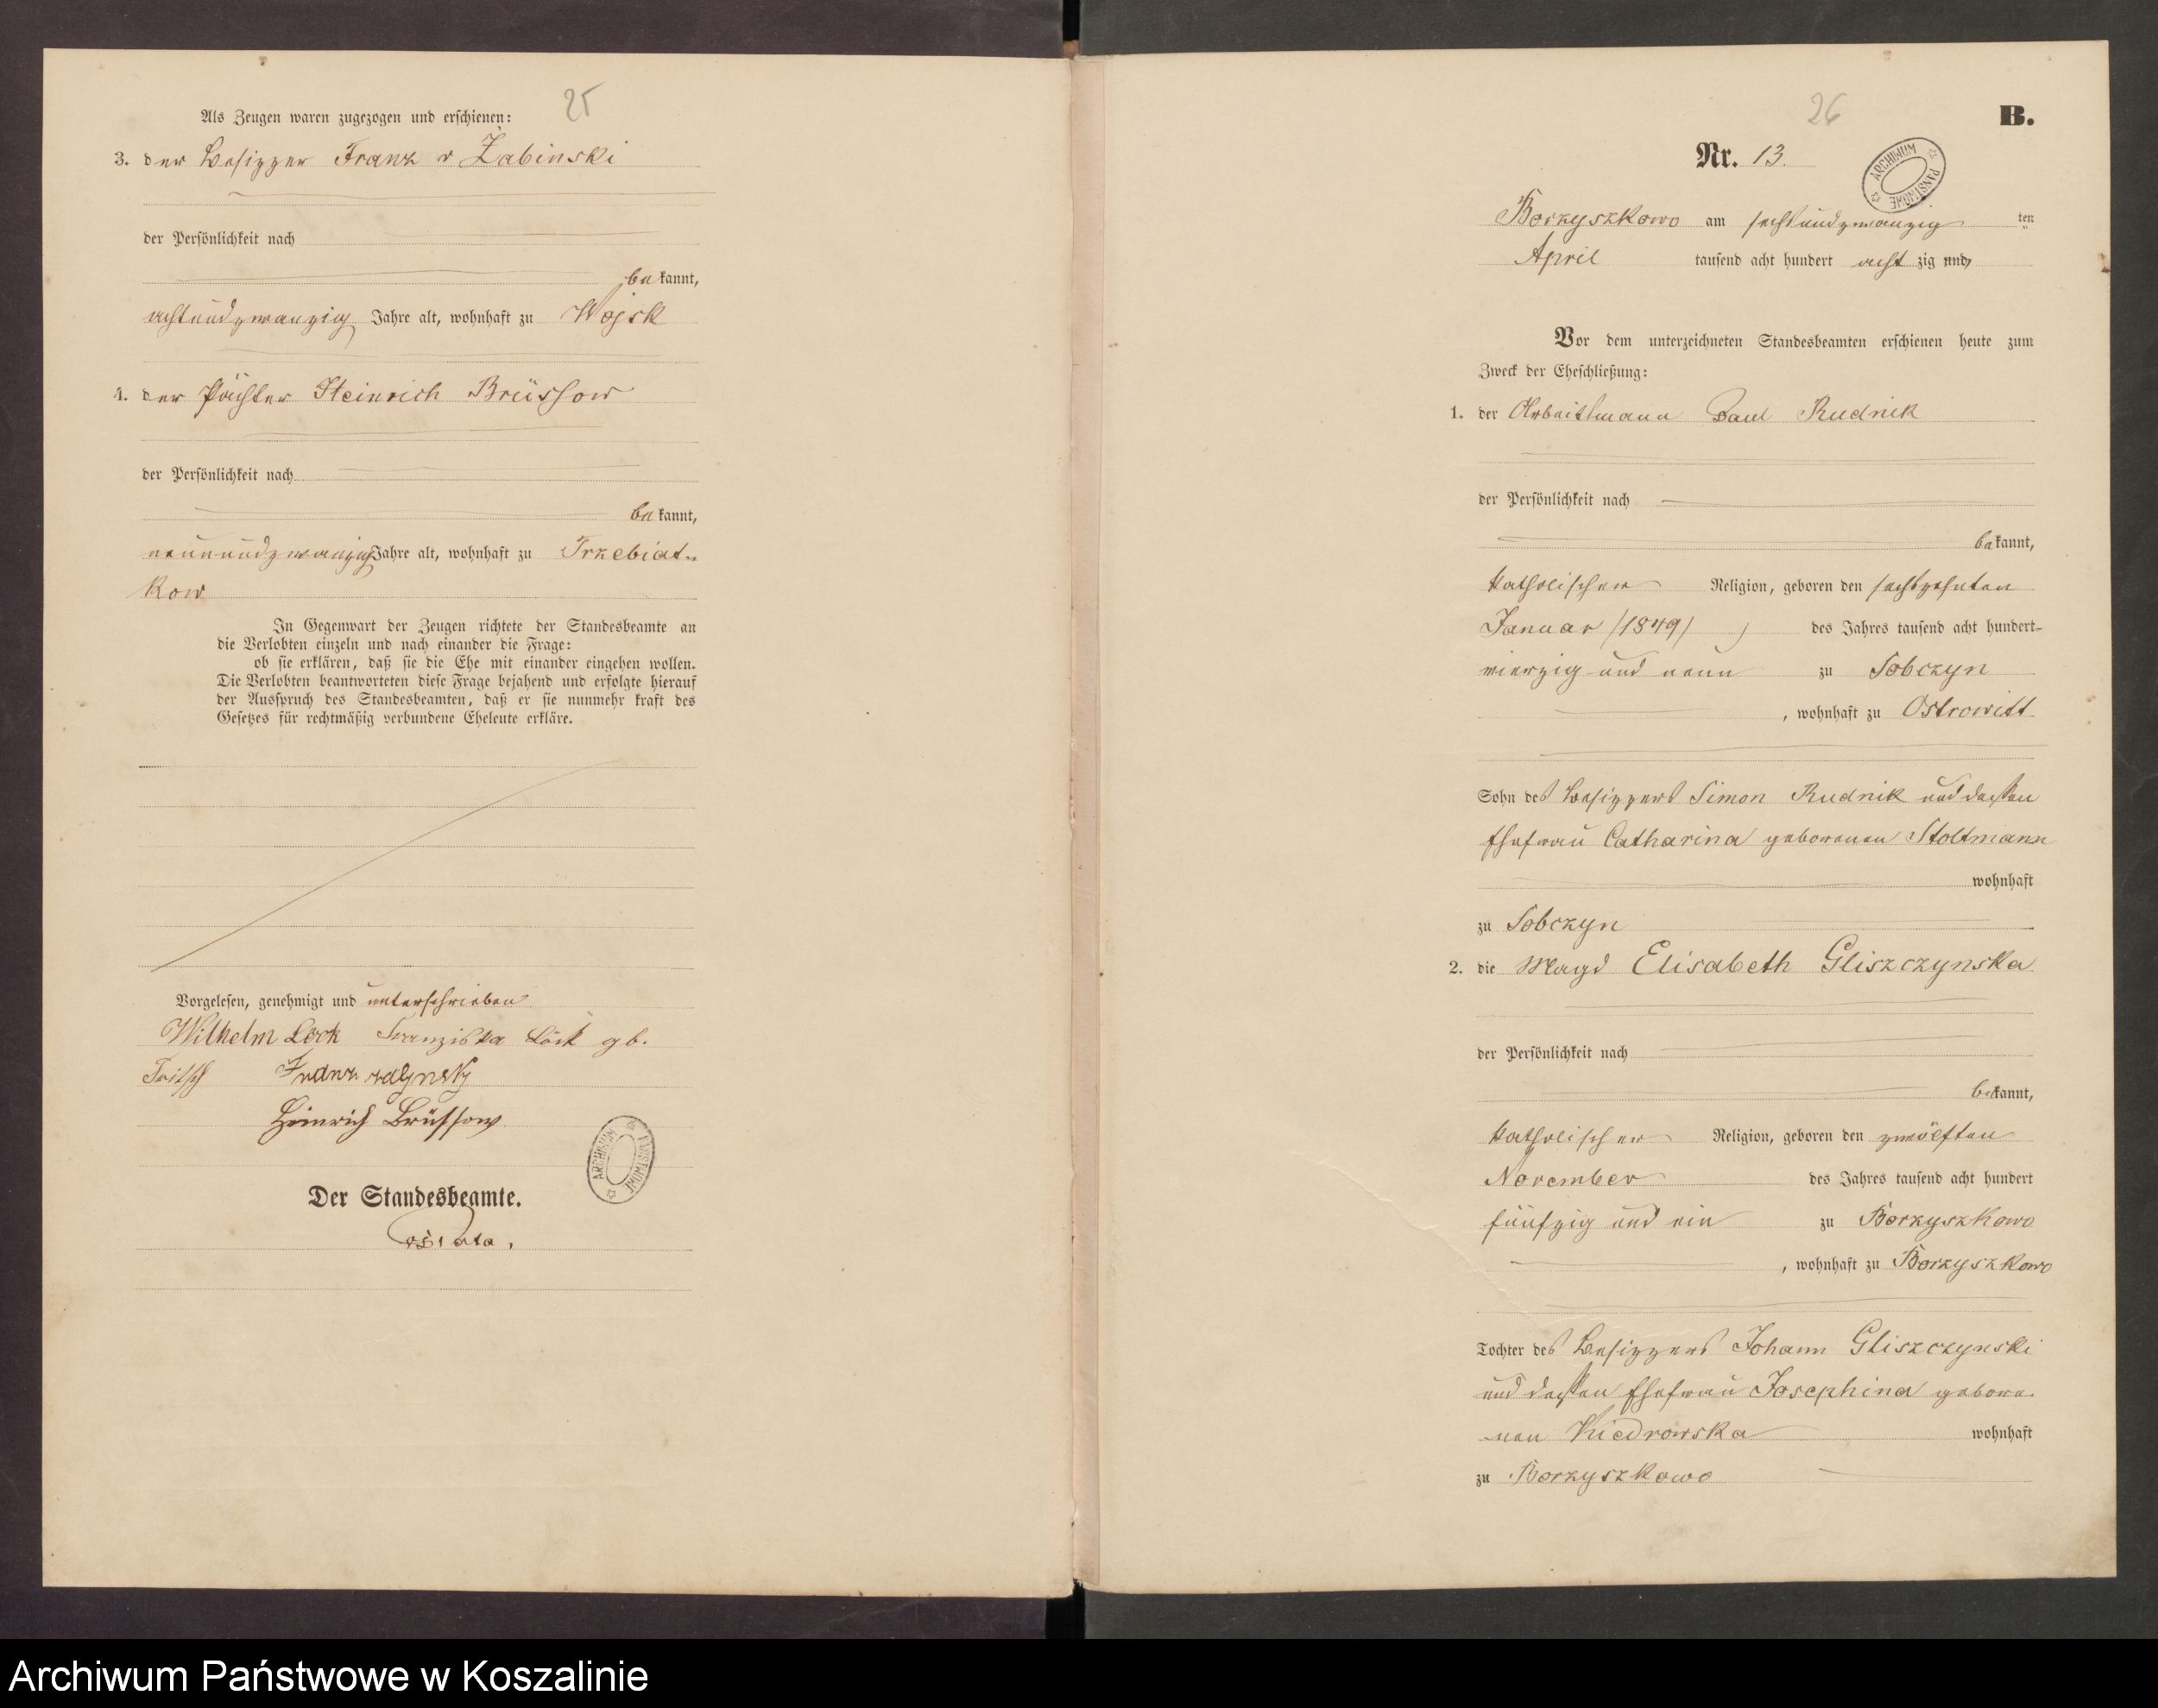 25
Als Zeugen waren zugezogen und erschienen:
3. der Besitzer Franz v Żabinski
der Persönlichkeit nach
bekannt,
achtundzwanzig Jahre alt, wohnhaft zu Wojsk
4. der Pächter Heinrich Brüssow
der Persönlichkeit nach
bekannt,
neunundzwanzig Jahre alt, wohnhaft zu Trzebiat-
kow
In Gegenwart der Zeugen richtete der Standesbeamte an
die Verlobten einzeln und nach einander die Frage:
ob sie erklären, daß sie die Ehe mit einander eingehen wollen.
Die Verlobten beantworteten diese Frage bejahend und erfolgte hierauf
der Ausspruch des Standesbeamten, daß er sie nunmehr kraft des
Gesetzes für rechtmäßig verbundene Eheleute erkläre.
Vorgelesen, genehmigt und unterschrieben
Wilhelm Löck Franziska Löck gb.
Fritsch Franz
Heinrich Brüssow
ARCHIWUM PAŃSTWOWE
Der Standesbeamte.
26
B.
Nr. 13.
ARCHIWUM PAŃSTWOWE
Borzyszkowo am sechsundzwanzig ten
April tausend acht hundert acht zig und
Vor dem unterzeichneten Standesbeamten erschienen heute zum
Zweck der Eheschließung:
1. der Arbeitsmann Paul Rudnik
der Persönlichkeit nach
bekannt,
katholischer Religion, geboren den sechszehnten
Januar /1849/ des Jahres tausend acht hundert-
vierzig und neun zu Sobczyn
, wohnhaft zu Ostrowitt
Sohn des Besitzers Simon Rudnik und dessen
Ehefrau Catharina geborenen Stoltmann
wohnhaft
zu Sobczyn
2. die Magd Elisabeth Gliszczynska
der Persönlichkeit nach
bekannt,
katholischer Religion, geboren den zwölften
November des Jahres tausend acht hundert
fünfzig und ein zu Borzyszkowo
, wohnhaft zu Borzyszkowo
Tochter des Besitzers Johann Gliszczynski
und dessen Ehefrau Josephina gebore-
nen Kiedrowska wohnhaft
zu Borzyszkowo
Archiwum Państwowe w Koszalinie